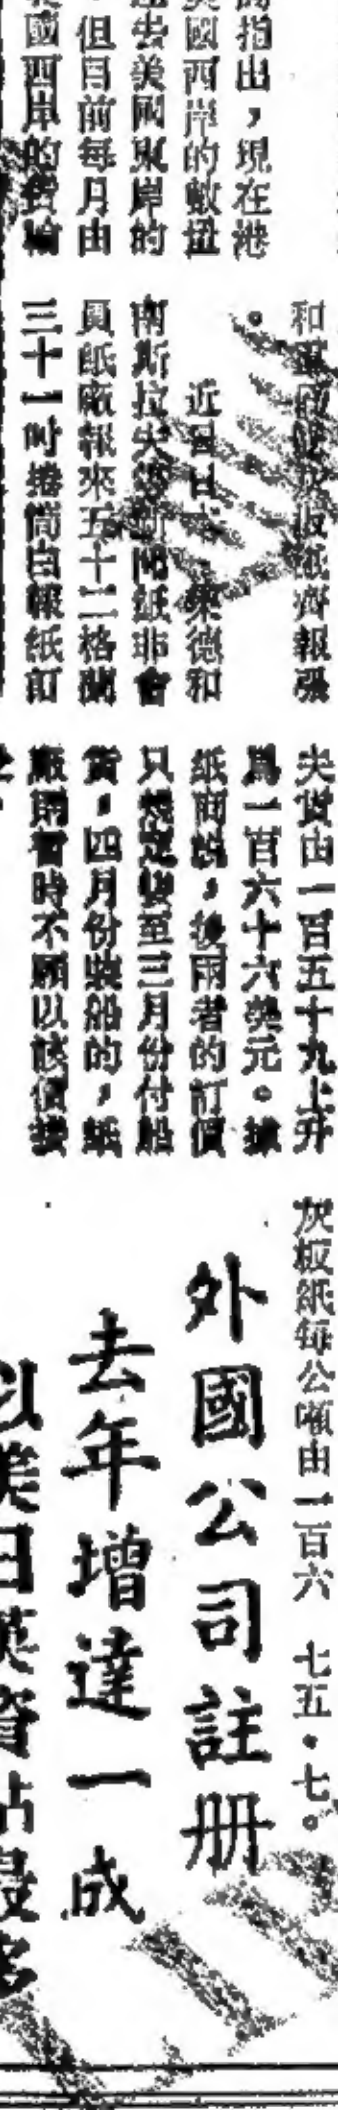 指出，現在港
國西岸的數
去美國東岸的
但目前每月由
國西岸的貨輪
齊報漲
。
近日日本、東德和
南斯拉夫等新聞紙非會
員紙廠報來五十二格蘭
三十一吋捲筒白報紙訂
夫貨由一百五十九上升
為一百六十六美元。據
紙商說，後兩者的訂價
只想定至三月份付船
貨，四月份裝船的，紙
廠商暫時不願以該價接
灰板紙每公噸由一百六
七五・七。
外國公司註册
去年增達一成
以美日英資佔最多